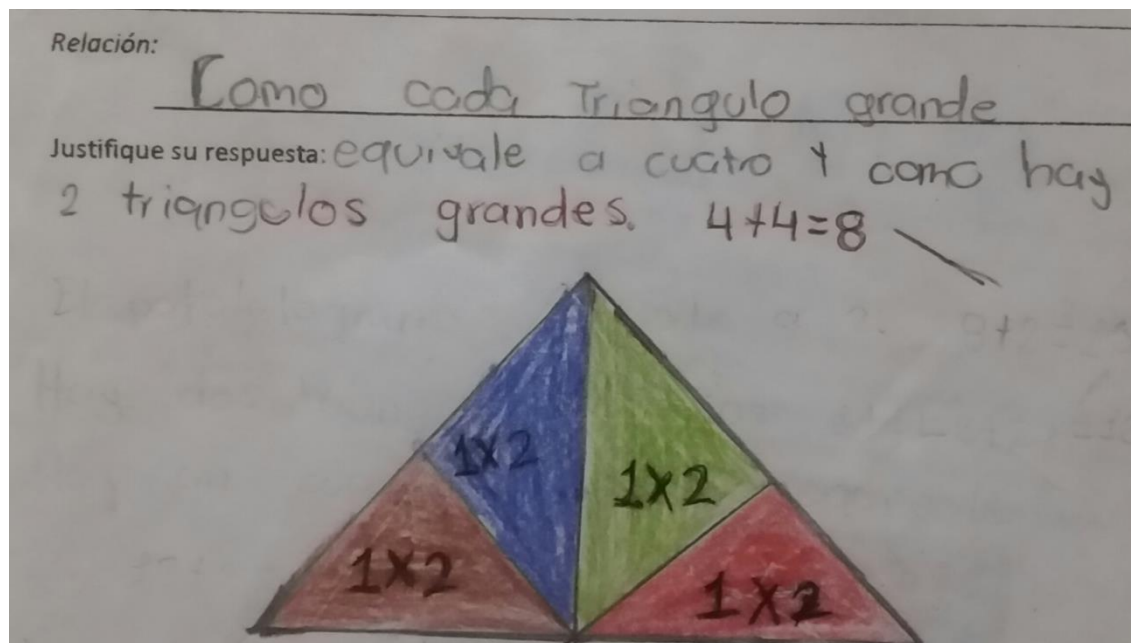 Relación:
Como cada Triangulo grande
Justifique su respuesta: equivale a cuatro Y como hay
2 triangulos grandes. 4+4=8
1x2
1x2
1x2
1x2